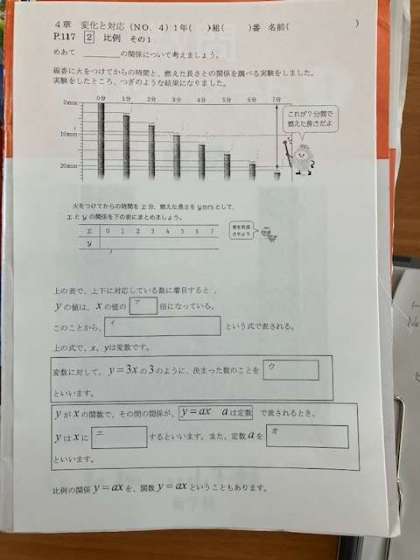 4章 変化と対応（NO．4）1年（ ）組（ ）番 名前（ ）
P.117 2 比例 その1
めあて の関係について考えましょう。
線香に火をつけてからの時間と、燃えた長さとの関係を調べる実験をしました。
実験をしたところ、つぎのような結果になりました。
0分 1分 2分 3分 4分 5分 6分 7分
0mm
10mm
20mm
これが7分間で
燃えた長さだよ
火をつけてからの時間を x 分、燃えた長さを y mmとして、
x と y の関係を下の表にまとめましょう。
x 0 1 2 3 4 5 6 7
y
上の表で、上下に対応している数に着目すると、
y の値は、x の値の ア 倍になっている。
このことから、 イ という式で表される。
上の式で、x、yは変数です。
変数に対して、y=3x の 3 のように、決まった数のことを ウ
といいます。
y が x の関数で、その間の関係が、 y=ax aは定数 で表されるとき、
y は x に エ するといいます。また、定数 a を オ
といいます。
比例の関係 y=ax を、関数 y=ax ということもあります。